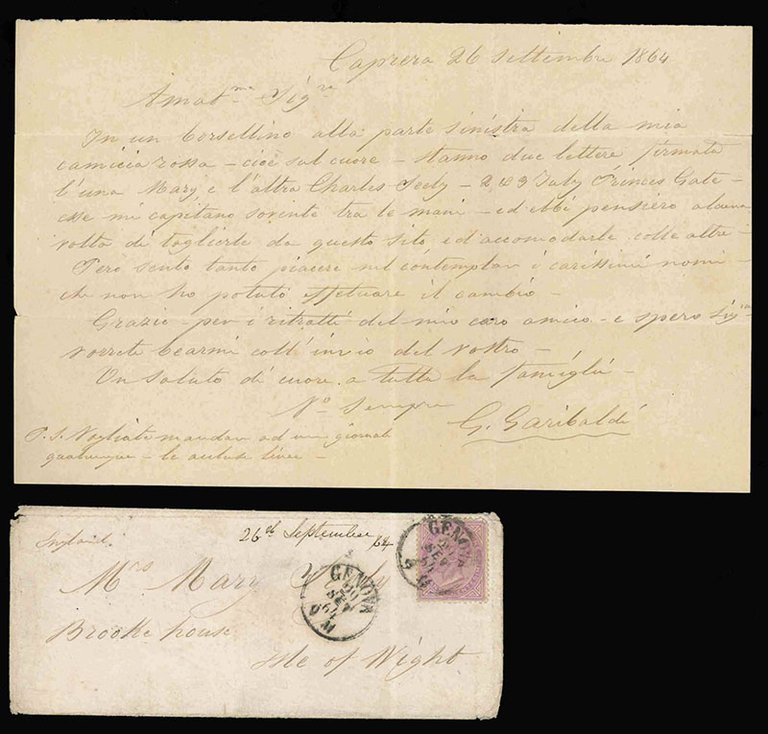 Caprera 26 Settembre 1864
Amat.ma Sig.ra
In un borsellino alla parte sinistra della mia
camicia rossa – cioè sul cuore – stanno due lettere firmate
l'una Mary, e l'altra Charles Seely – 2 & 3 July Princes Gate –
esse mi capitano sovente tra le mani – ed ebbi pensiero alcuna
volta di toglierle da questo sito, ed accomodarle colle altre –
Però sento tanto piacere nel contemplar i carissimi nomi –
che non ho potuto effetuare il cambio –
Grazie – per i ritratti del mio caro amico – e spero Sig.ra
vorrete bearmi coll'invio del vostro –
Un saluto di cuore a tutta la famiglia –
V.o Sempre
G. Garibaldi
P.S. Vogliate mandar ad un giornale
qualunque – le
England
26th September /64
GENOVA
Mrs Mary Seely
GENOVA
Brooke house
Isle of Wight